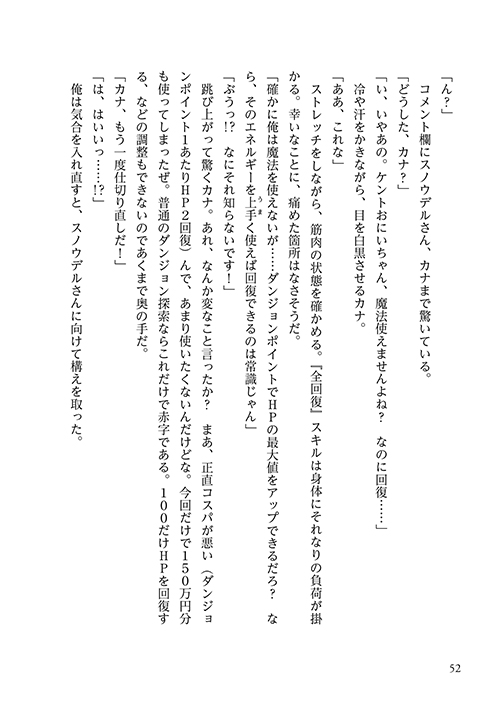 「ん?」
　コメント欄にスノウデルさん、カナまで驚いている。
「どうした、カナ?」
「い、いやあの。ケントおにいちゃん、魔法使えませんよね?　なのに回復……」
　冷や汗をかきながら、目を白黒させるカナ。
「ああ、これな」
　ストレッチをしながら、筋肉の状態を確かめる。『全回復』スキルは身体にそれなりの負荷が掛
かる。幸いなことに、痛めた箇所はなさそうだ。
「確かに俺は魔法を使えないが……ダンジョンポイントでＨＰの最大値をアップできるだろ?　な
ら、そのエネルギーを上手く使えば回復できるのは常識じゃん」
うま
「ぶうっ!?　なにそれ知らないです!」
　跳び上がって驚くカナ。あれ、なんか変なこと言ったか?　まあ、正直コスパが悪い（ダンジョ
ンポイント１あたりＨＰ２回復）んで、あまり使いたくないんだけどな。今回だけで１５０万円分
も使ってしまったぜ。普通のダンジョン探索ならこれだけで赤字である。１００だけＨＰを回復す
る、などの調整もできないのであくまで奥の手だ。
「カナ、もう一度仕切り直しだ!」
「は、はいいっ……!?」
　俺は気合を入れ直すと、スノウデルさんに向けて構えを取った。
52